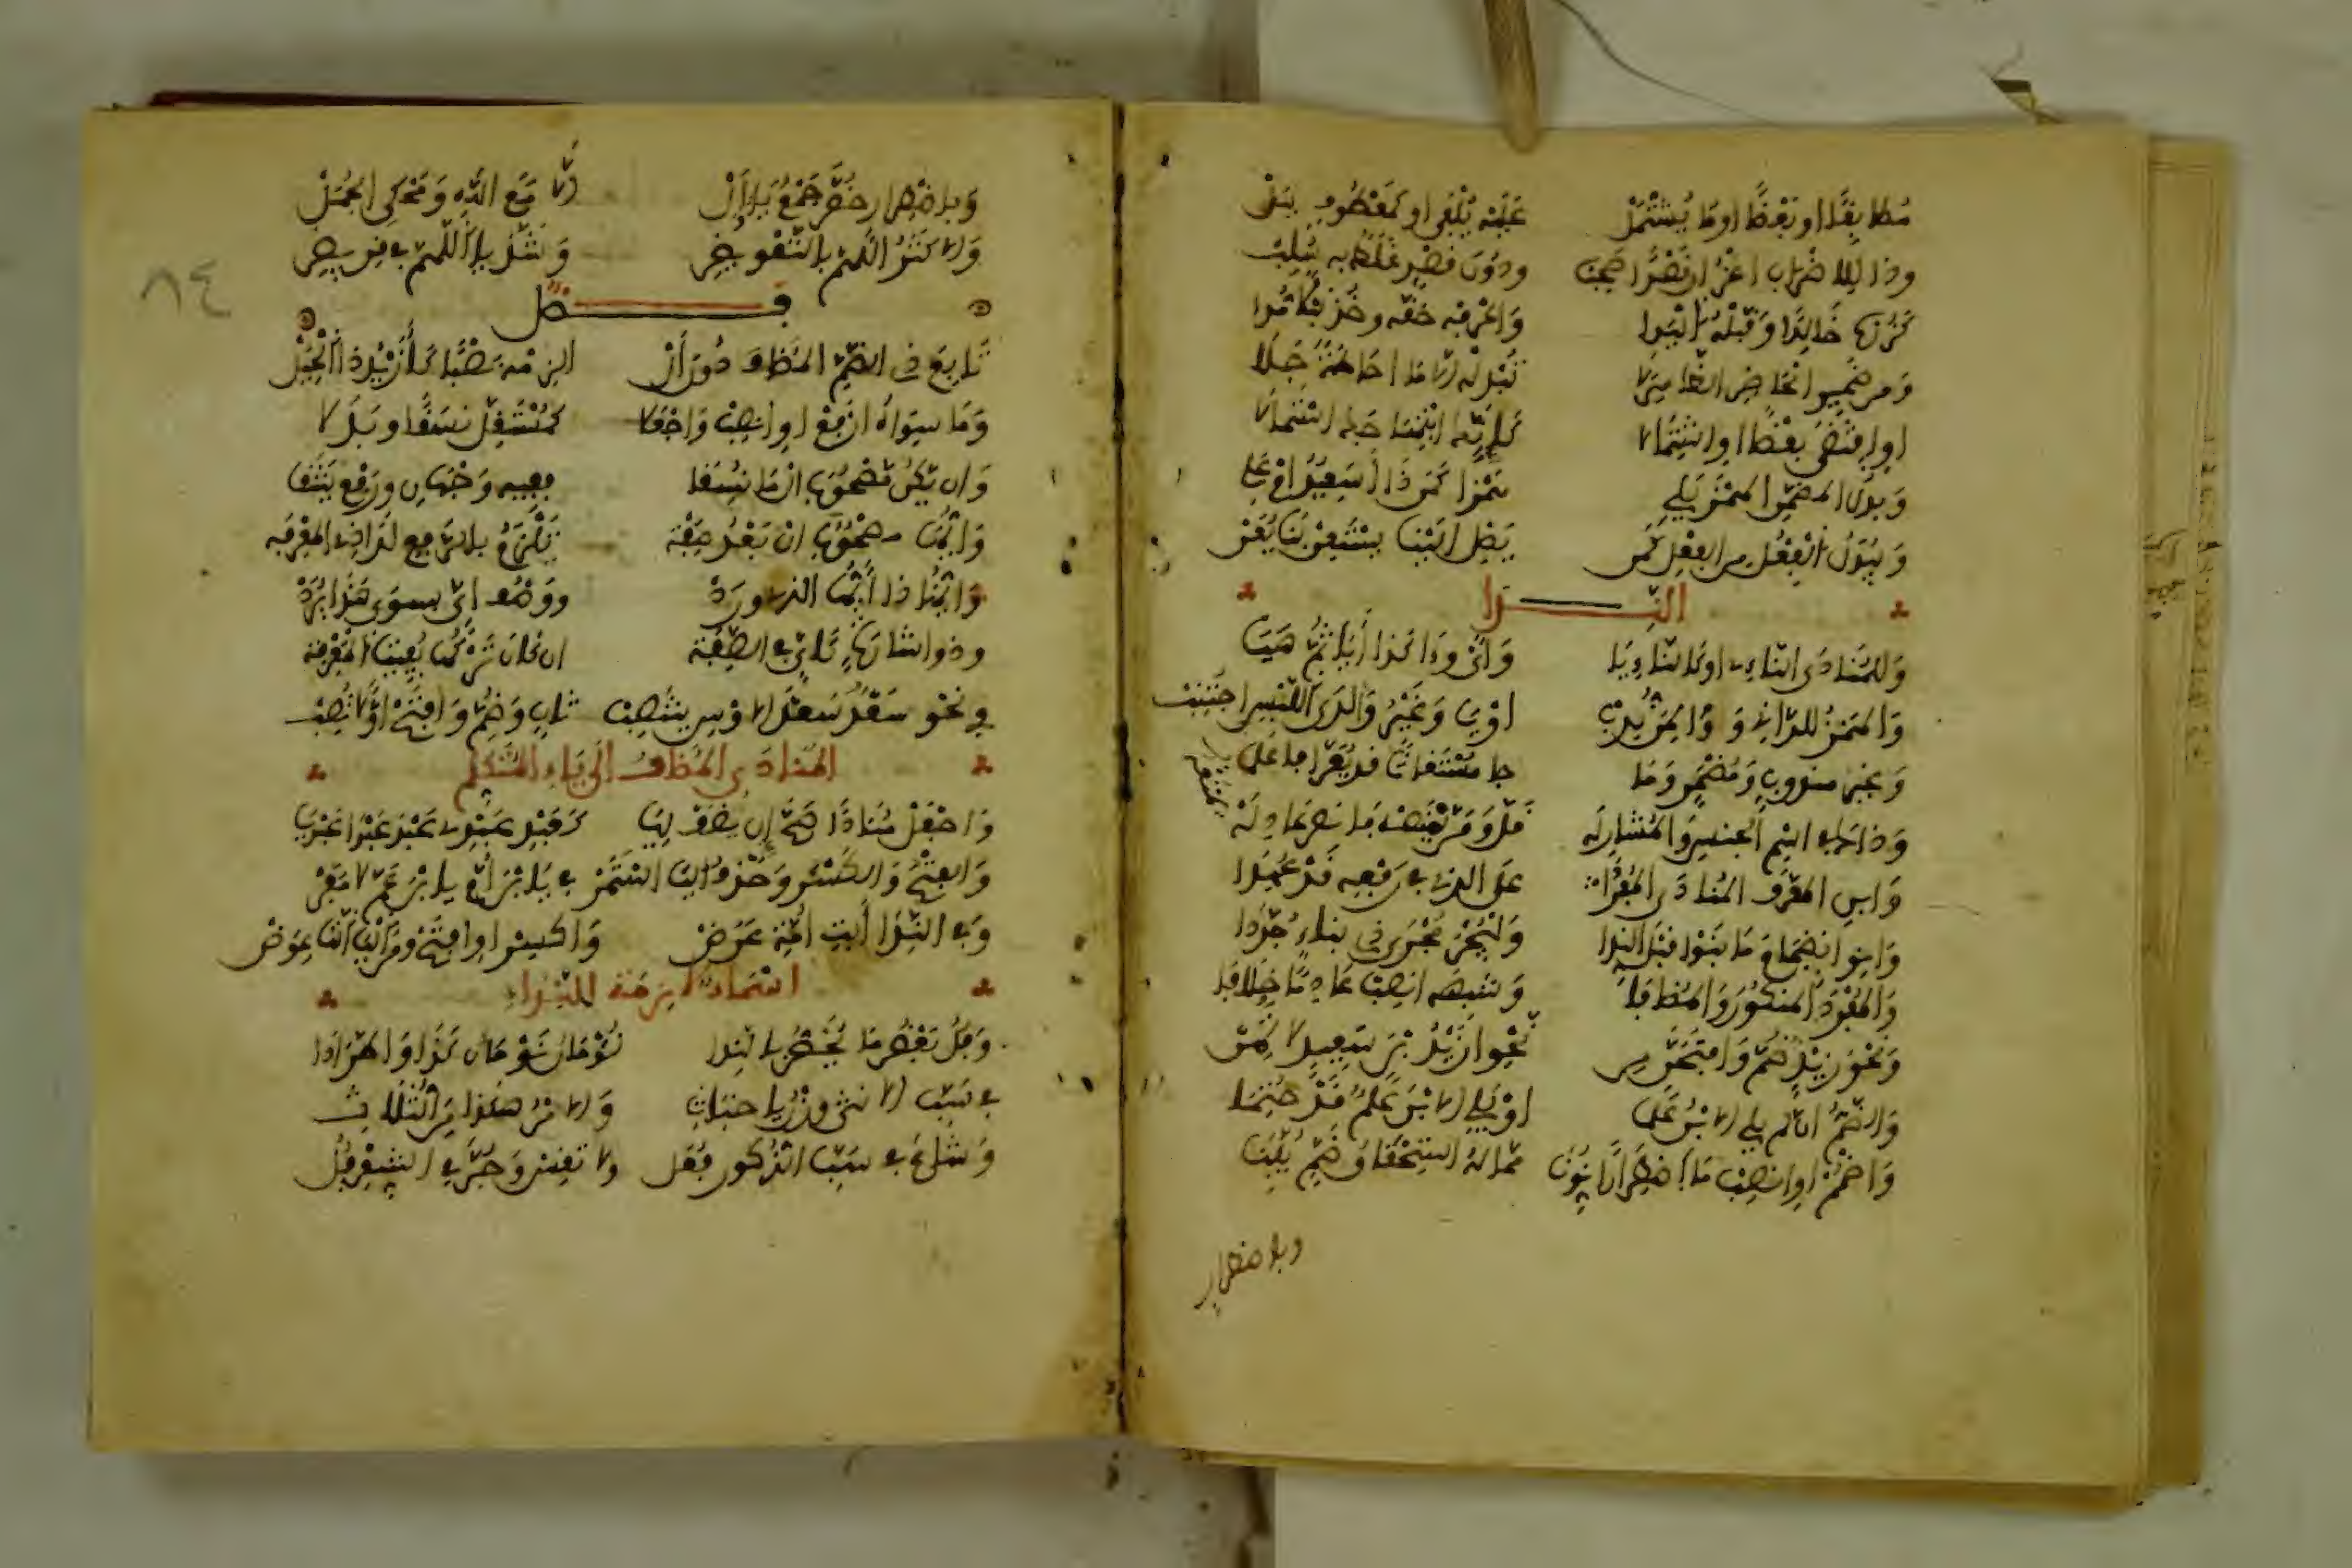 مطابقا او بعضا او ما يشتمل عليه يلفى او كمعطوف ببل
وذا للاضراب اعز ان قصدا صحب ودون قصد غلط به سلب
كزره خالدا وقبله اليدا واعرفه حقه وخذ نبلا مدا
ومن ضمير الحاضر الظاهر لا تبدله الا ما احاطة جلا
او اقتضى بعضا او اشتمالا كانك ابتهاجك استمالا
وبدل المضمن الهمز يلي همزا كمن ذا أسعيد ام علي
ويبدل الفعل من الفعل كمن يصل الينا يستعن بنا يعن
الندا
وللمنادى الناء او كالناء يا وأي وءا كذا أيا ثم هيا
والهمز للداني و وا لمن ندب او يا وغير وا لدى اللبس اجتنب
وغير مندوب ومضمر وما جا مستغاثا قد يعرا فاعلما
وذاك في اسم الجنس والمشار له قل ومن يمنعه فانصر عاذله
وابن المعرف المنادى المفردا على الذي في رفعه قد عهدا
وانو انضمام ما بنوا قبل الندا وليجر مجرى ذي بناء جددا
والمفرد المنكور والمضافا وشبهه انصب عادما خلافا
ونحو زيد ضم وافتحن من نحو ازيد بن سعيد لا تهن
والضم ان لم يل الابن علما او يل الابن علم قد حتما
واضمم او انصب ما اضطرارا نونا مما له استحقاق ضم بينا
وباضطرار
٨٤
وباضطرار خص جمع يا وأل الا مع الله ومحكي الجمل
والاكثر اللهم بالتعويض وشذ يا اللهم في قريض
فصل
تابع ذي الضم المضاف دون أل الزمه نصبا كأزيد ذا الحيل
وما سواه ارفع او انصب واجعلا كمستقل نسقا وبدلا
وان يكن مصحوب ال ما نسقا ففيه وجهان ورفع ينتقا
وايها مصحوب ال بعد صفه يلزم بالرفع لدى ذي المعرفه
وايهذا ايها الذي ورد ووصف اي بسوى هذا يرد
وذو اشارة كأي في الصفه ان كان تركها يفيت المعرفه
في نحو سعد سعد الاوس ينتصب ثان وضم وافتح أولا تصب
المنادى المضاف الى ياء المتكلم
واجعل منادى صح ان يضف ليا كعبد عبدي عبد عبدا عبديا
والفتح والكسر وحذف اليا استمر في يا بن أم يا بن عم لا مفر
وفي الندا أبت أمت عرض واكسر او افتح ومن اليا التا عوض
اسماء لازمت النداء
وفل بعض ما يخص بالندا لؤمان نومان كذا واطردا
في سب الانثى وزن يا خباث والامر هكذا من الثلاثي
وشاع في سب الذكور فعل ولا تقس وجر في الشعر فل